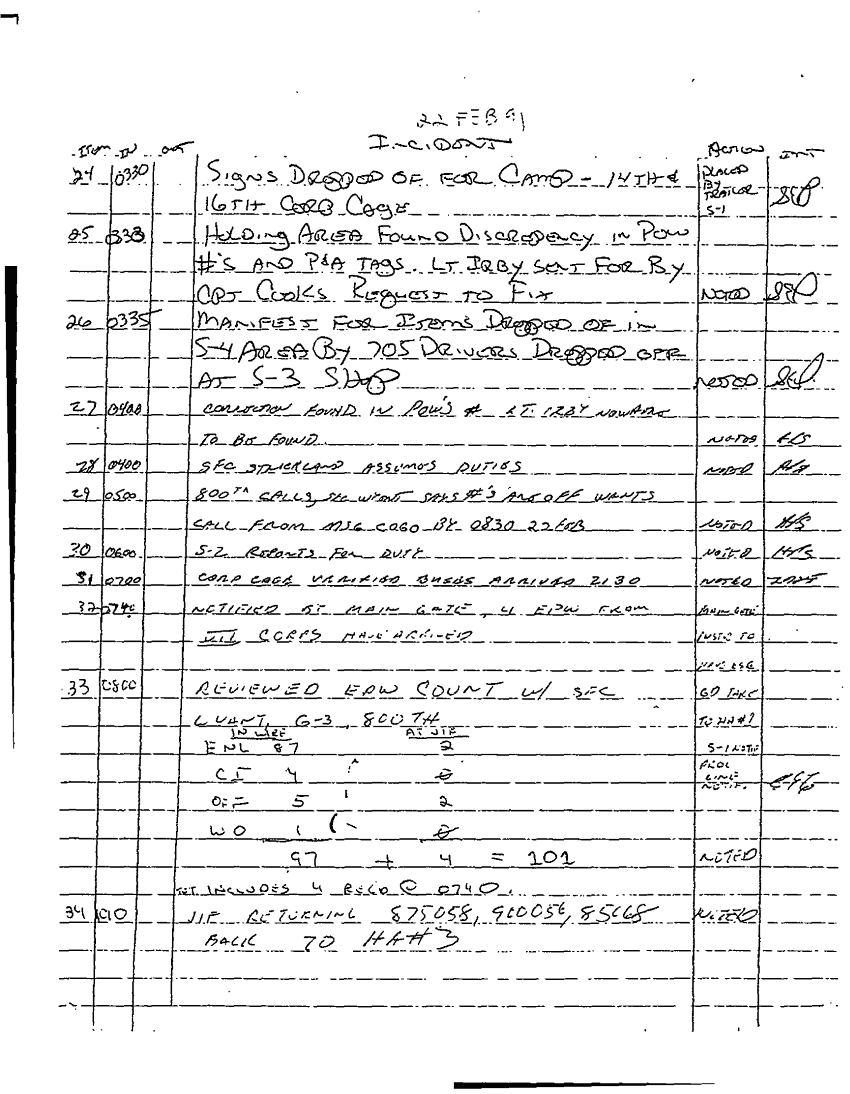 22 FEB 91
ITEM IN OUT INCIDENT ACTION INT
24 0330 SIGNS DROPPED OF FOR CAMP - 14TH & PLACED BY TRAILER S-1
16TH CORP CAGE
25 333 HOLDING AREA FOUND DISCREPENCY IN POW
#'S AND P&A TAGS. LT IRBY SENT FOR BY
CPT COOKS REQUEST TO FIX NOTED
26 0335 MANIFEST FOR ITEMS DROPPED OF IN
S-4 AREA BY 705 DRIVERS DROPPED OFF
AT S-3 SHOP NOTED
27 0400 CORRECTION FOUND IN POW'S # LT. IRBY NOWHERE
TO BE FOUND NOTED
28 0400 SFC STRICKLAND ASSUMES DUTIES NOTED
29 0500 800TH CALLS, SAYS #'S ARE OFF WANTS
CALL FROM MSG BY 0830 22 FEB NOTED
30 0600 S-2 REPORTS FOR DUTY NOTED
31 0700 CORP CAGE VERIFIED BUSES ARRIVED 2130 NOTED
32 0740 NOTIFIED AT MAIN GATE, 4 EPW FROM MAIN GATE
CORPS HAVE ARRIVED TO
33 0800 REVIEWED EPW COUNT W/ SFC GO TAKE
G-3, 800TH TO HA#1
IN WIRE AT JIF
ENL 87 2
CI 4 0
OFF 5 2
WO 1 0
97 + 4 = 101 NOTED
INCLUDES 4 REC'D @ 0740.
34 JIF RETURNING 875058, NOTED
BACK TO HA#3